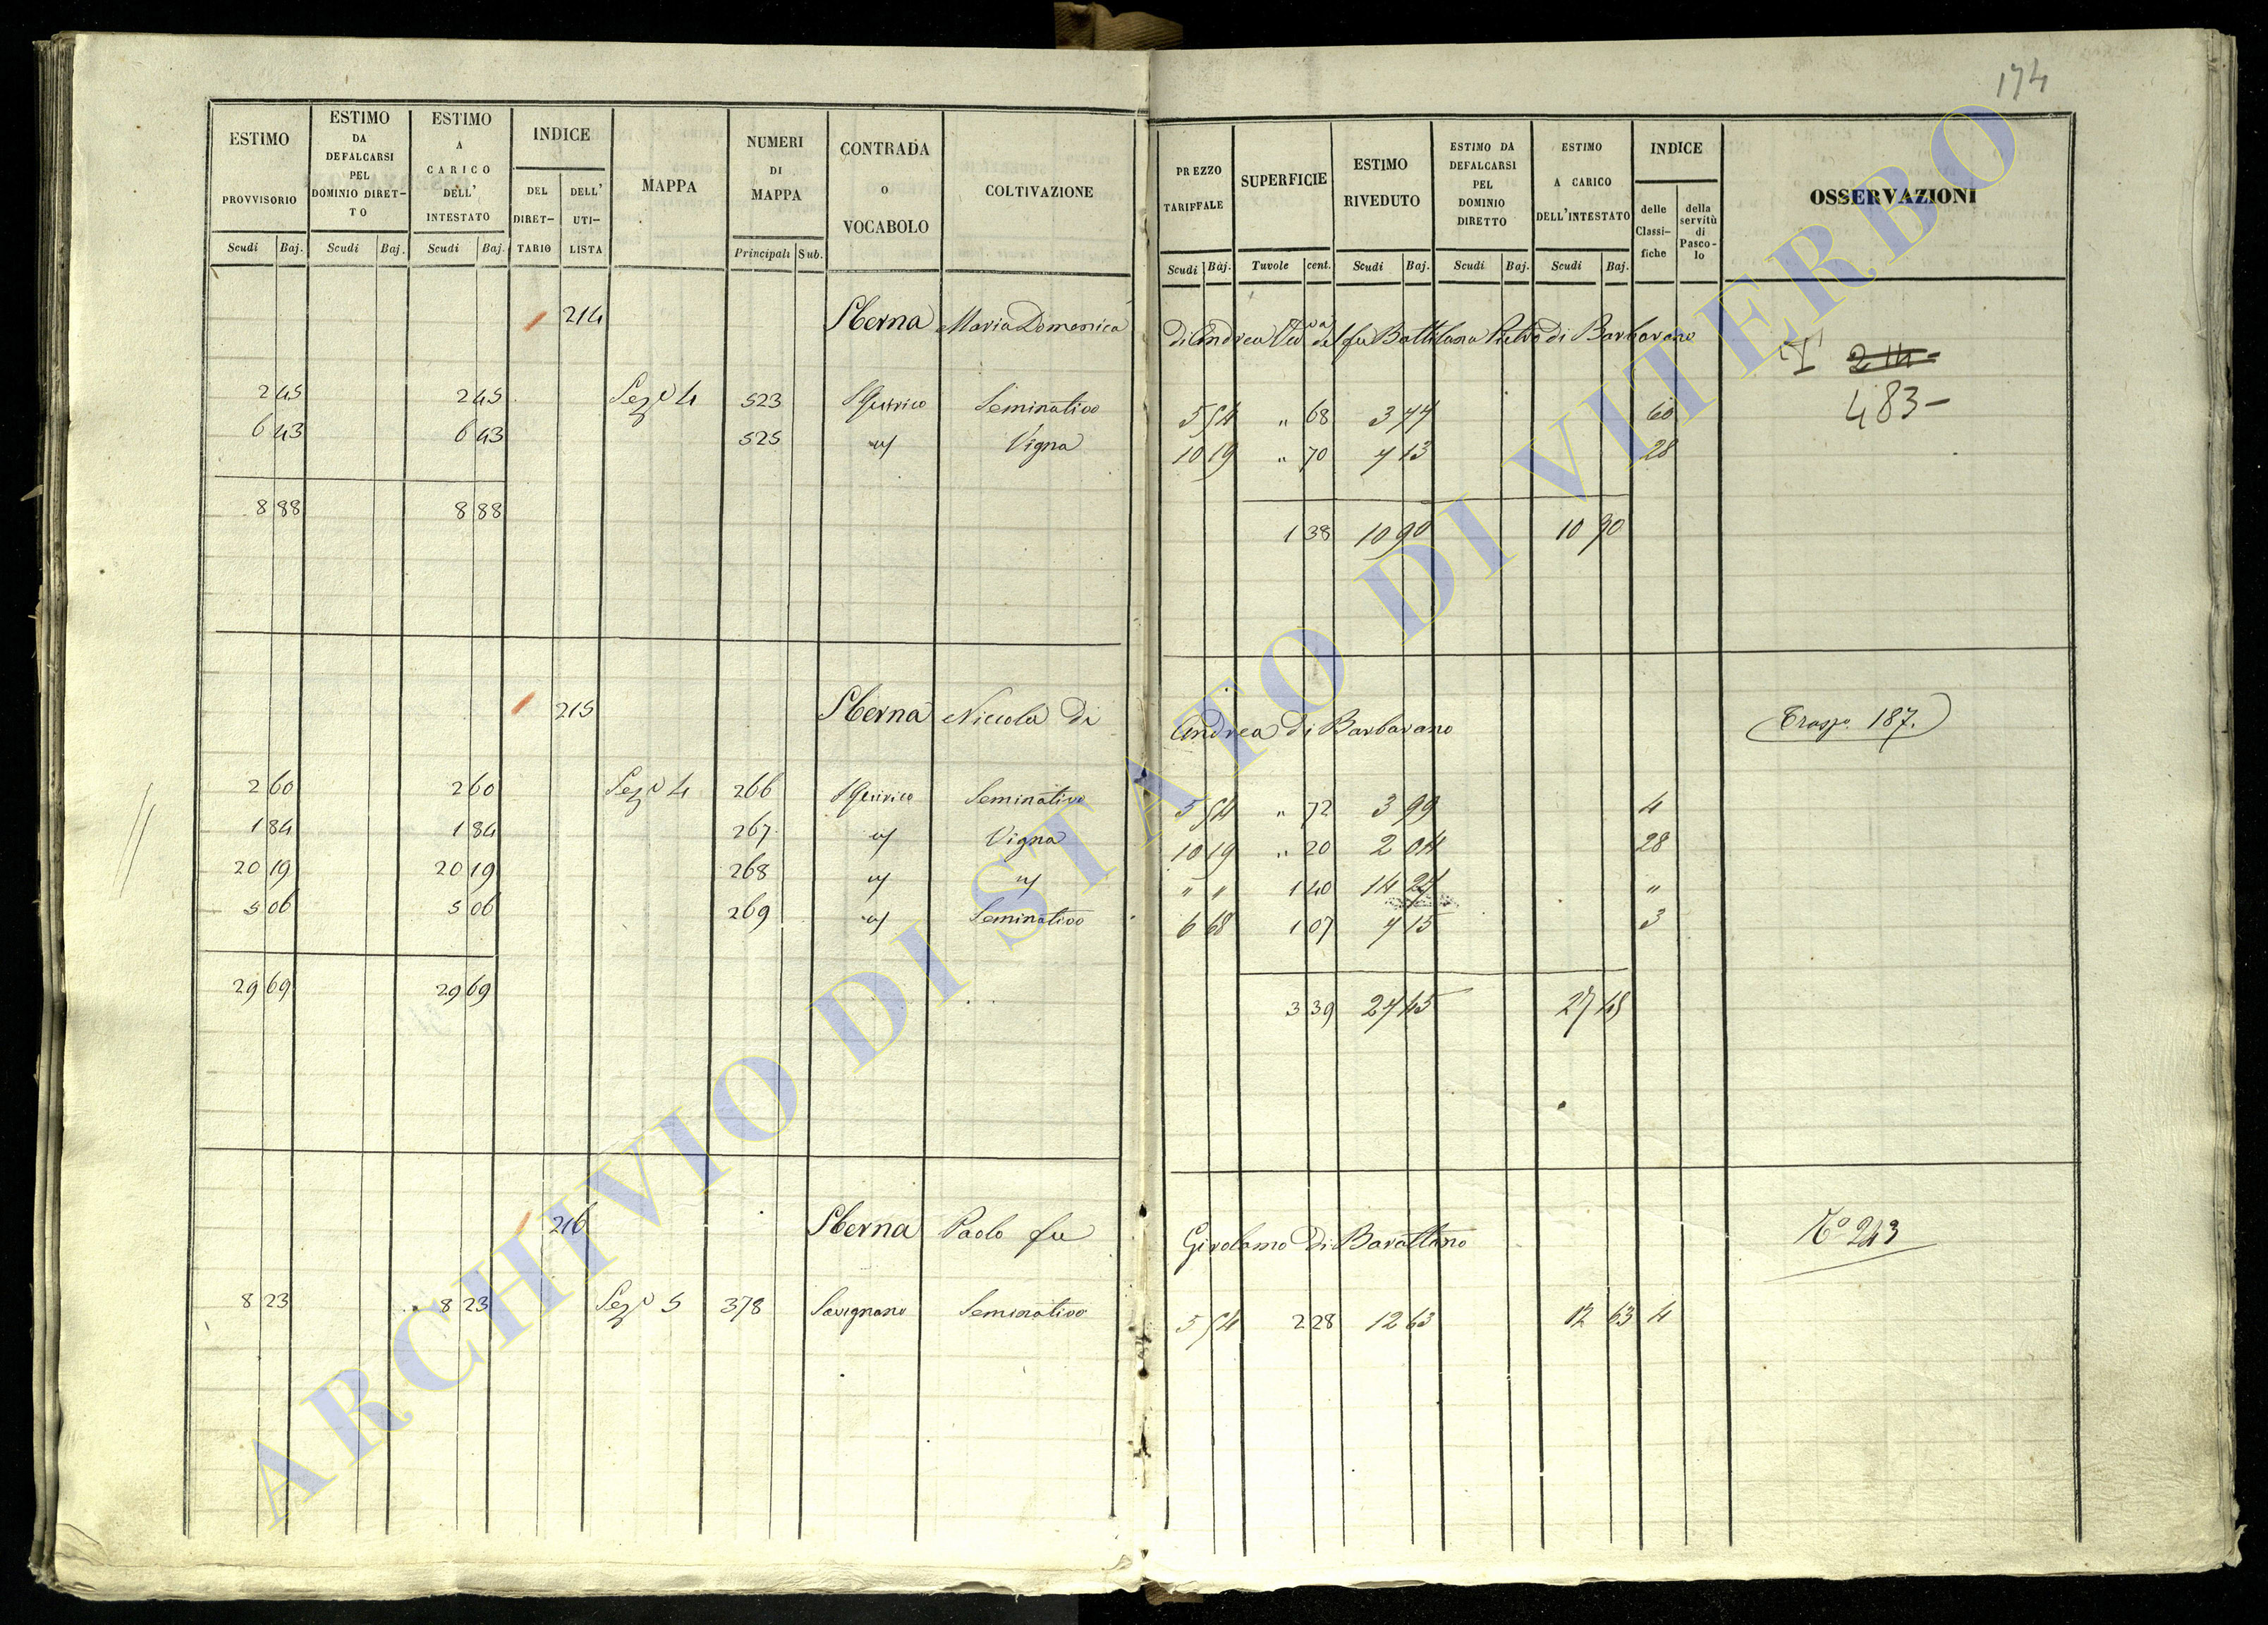 174
ESTIMO PROVVISORIO Scudi Baj.
ESTIMO DA DEFALCARSI PEL DOMINIO DIRET-TO Scudi Baj.
ESTIMO A CARICO DELL' INTESTATO Scudi Baj.
INDICE DEL DIRET-TARIO DELL' UTI-LISTA
MAPPA
NUMERI DI MAPPA Principali Sub.
CONTRADA O VOCABOLO
COLTIVAZIONE
PREZZO TARIFFALE Scudi Baj.
SUPERFICIE Tavole cent.
ESTIMO RIVEDUTO Scudi Baj.
ESTIMO DA DEFALCARSI PEL DOMINIO DIRETTO Scudi Baj.
ESTIMO A CARICO DELL'INTESTATO Scudi Baj.
INDICE delle Classi-fiche della servitù di Pasco-lo
OSSERVAZIONI
214 Sberna Maria Domenica di Andrea Ved va del fu Battilana Pietro di Barbarano
483-
2 45 2 45 Sez e 4 523 S Quirico Seminativo 5 54 " 68 3 77 60
6 43 6 43 525 Vigna 10 19 " 70 7 13 28
8 88 8 88 1 38 10 90 10 90
215 Sberna Niccola di Andrea di Barbarano Trasp. 187.
2 60 2 60 Sez e 4 266 S Quirico Seminativo 5 54 " 72 3 99 4
1 84 1 84 267 Vigna 10 19 " 20 2 04 28
20 19 20 19 268 " " 1 40 14 27 "
5 06 5 06 269 Seminativo 6 68 1 07 7 15 3
29 69 29 69 3 39 27 45 27 45
216 Sberna Paolo fu Girolamo di Barattano N° 243
8 23 8 23 Sez e 5 378 Savignano Seminativo 5 54 2 28 12 63 12 63 4
ARCHIVIO DI STATO DI VITERBO